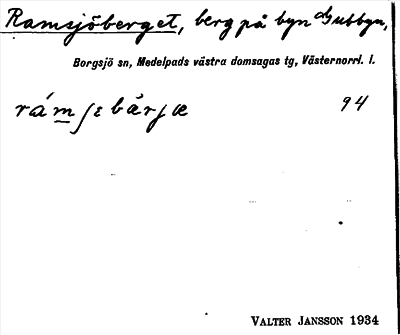 Ramsjöberget, berg på byn Gubbyn,
Borgsjö sn, Medelpads västra domsagas tg, Västernorrl. l.
94
VALTER JANSSON 1934